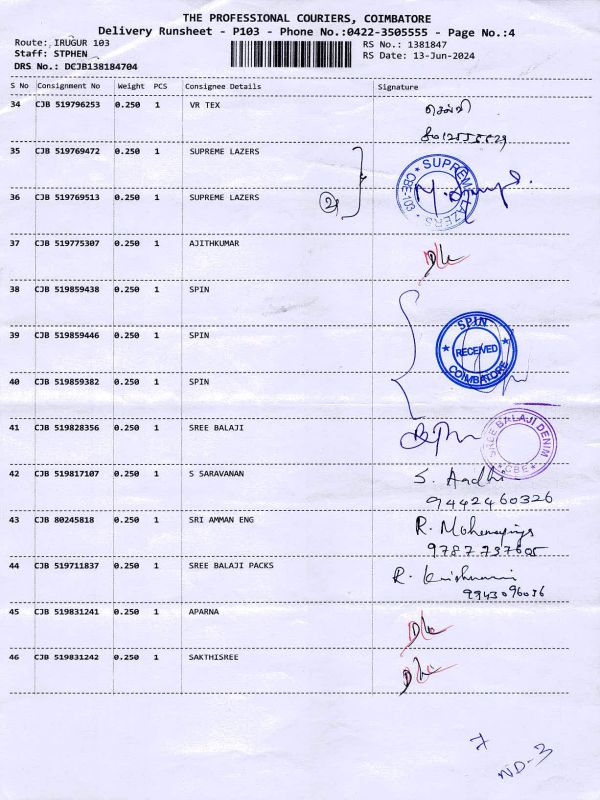 THE PROFESSIONAL COURIERS, COIMBATORE
Delivery Runsheet - P103 - Phone No.:0422-3505555 - Page No.:4
Route: IRUGUR 103
RS No.: 1381847
Staff: STPHEN
RS Date: 13-Jun-2024
DRS No.: DCJB138184704
S No Consignment No Weight PCS Consignee Details Signature
34 CJB 519796253 0.250 1 VR TEX செல்வி
35 CJB 519769472 0.250 1 SUPREME LAZERS
SUPREME LAZERS
CBE-103
36 CJB 519769513 0.250 1 SUPREME LAZERS
37 CJB 519775307 0.250 1 AJITHKUMAR
38 CJB 519859438 0.250 1 SPIN
39 CJB 519859446 0.250 1 SPIN
SPIN
RECEIVED
COIMBATORE
40 CJB 519859382 0.250 1 SPIN
41 CJB 519828356 0.250 1 SREE BALAJI
SREE BALAJI DENIM
CBE
42 CJB 519817107 0.250 1 S SARAVANAN S. Aadhi
9442460326
43 CJB 80245818 0.250 1 SRI AMMAN ENG R.
9787737605
44 CJB 519711837 0.250 1 SREE BALAJI PACKS R.
9943096036
45 CJB 519831241 0.250 1 APARNA
46 CJB 519831242 0.250 1 SAKTHISREE
ND-3